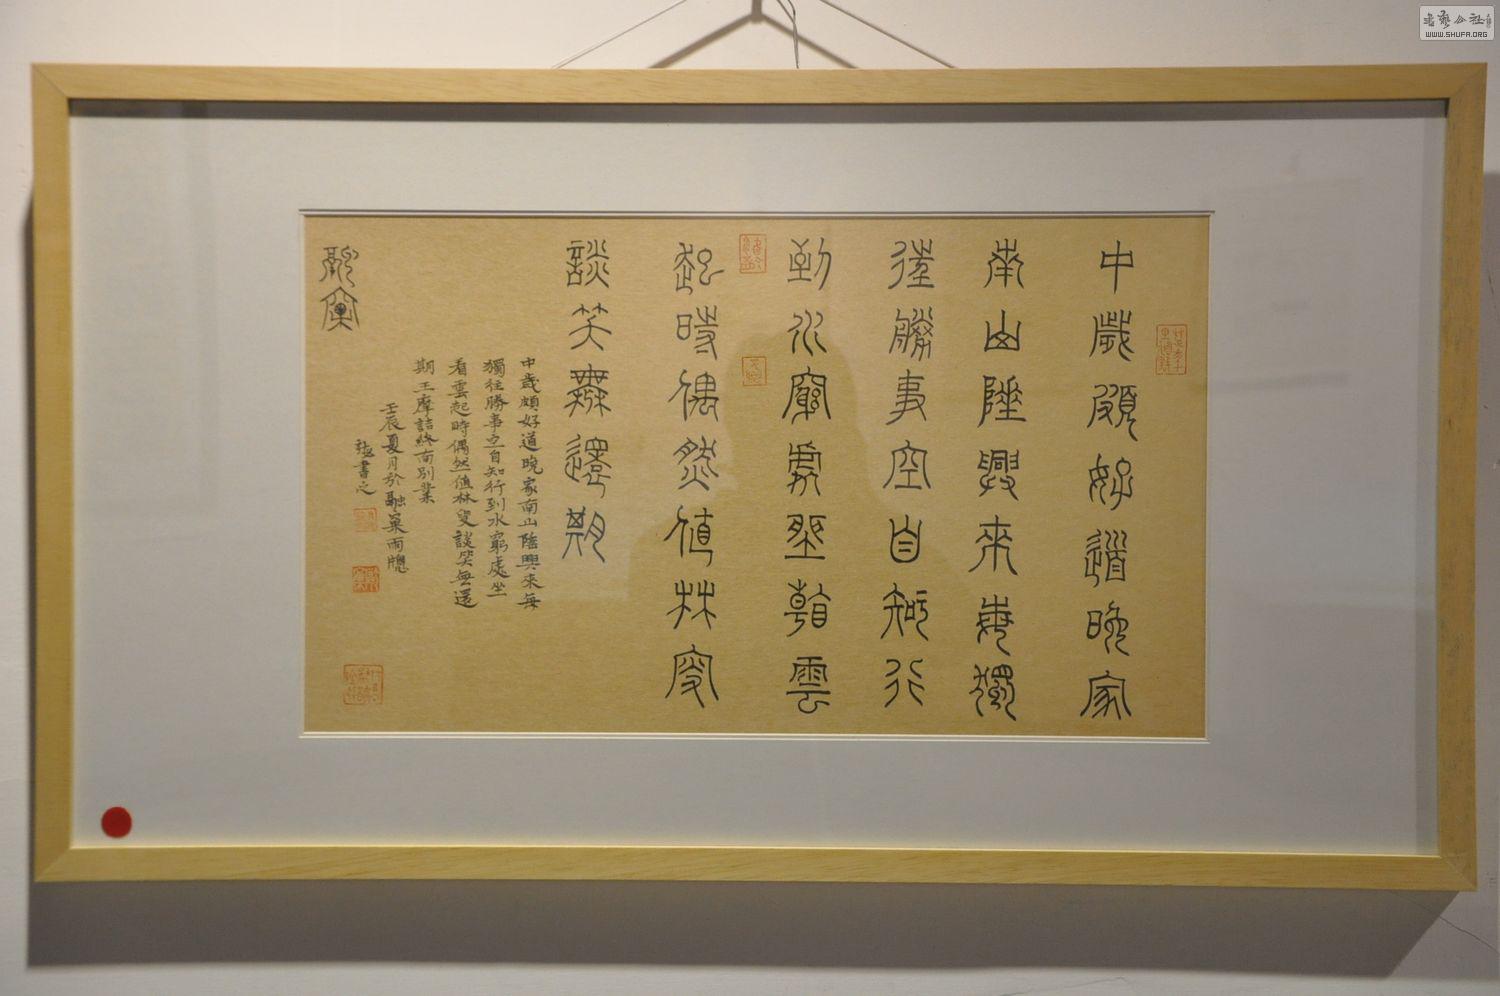 中歲頗好道晚家
南山陲興來每獨
往勝事空自知行
到水窮處坐看雲
起時偶然值林叟
談笑無還期
中歲頗好道晚家南山陲興來每
獨往勝事空自知行到水窮處坐
看雲起時偶然值林叟談笑無還
期王摩詰終南別業
壬辰夏月於融巢雨牕
書之
融巢
WWW.SHUFA.ORG